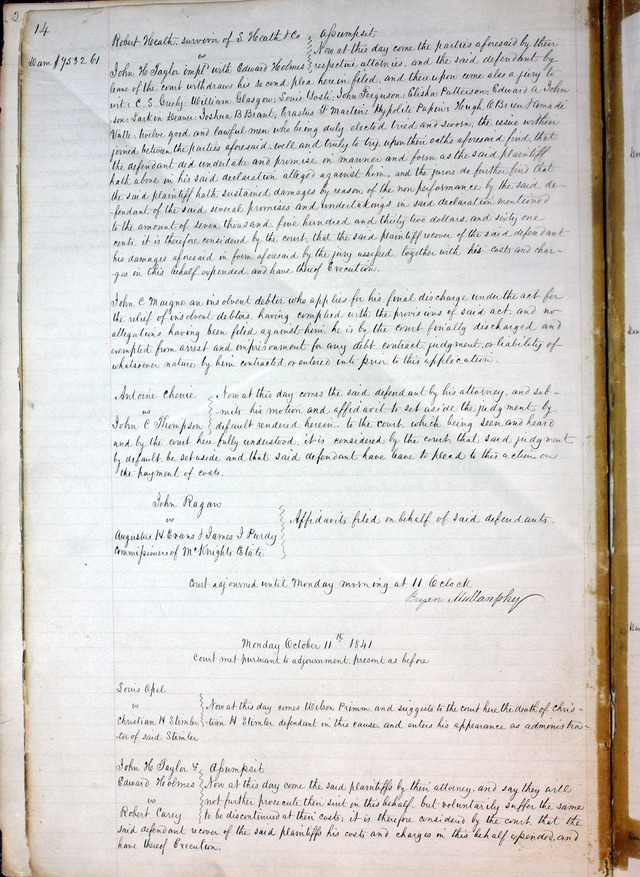 2
14
Robert Heath survivor of S. Heath & Co } Assumpsit
vs } Now at this day come the parties aforesaid by their
Dam $7532.61
John H Taylor impl'd with Edward Holmes } respective attornies, and the said defendant by
leave of the court withdraws his second plea herein filed, and thereupon come also a jury to
wit: William Glasgow; Louis Yosti; John Ferguson; Elisha Patterson; Edward A John
son; Larkin Deaver; Joshua B Brant; Erastus Hypolite Papin; Hough O'Brien & Amade
Valle, twelve good and lawful men who being duly elected tried and sworn, the issue within
joined between the parties aforesaid, well and truly to try, upon their oaths aforesaid find, that
the defendant did undertake and promise in manner and form as the said plaintiff
hath above in his said declaration alleged against him, and the jurors do further find that
the said plaintiff hath sustained damages by reason of the nonperformance by the said de-
fendant of the said several promises and undertakings in said declaration mentioned
to the amount of seven thousand, five hundred and thirty two dollars, and sixty one
cents. it is therefore considered by the court, that the said plaintiff recover of the said defendant
his damages aforesaid in form aforesaid by the jury assessed, together with his costs and char-
ges in this behalf expended, and have thereof Execution.
John C Maigne an insolvent debtor who applies for his final discharge under the act for
the relief of insolvent debtors, having complied with the provisions of said act, and no
allegations having been filed against him, he is by the court finally discharged and
exempted from arrest and imprisonment for any debt, contract, judgment, or liability of
whatsoever nature by him contracted or entered into prior to this application.
Antoine Chenie } Now at this day comes the said defendant by his attorney, and sub-
vs } mits his motion and affidavit to set aside the judgment by
John C Thompson } default rendered herein to the court, which being seen and heard
and by the court here fully understood, it is considered by the court that said judgment
by default, be set aside and that said defendant have leave to plead to this action on
the payment of costs.
John Ragan
vs } Affidavits filed on behalf of said defendants.
Augustus H Evans & James J Purdy
Commissioners of McKnights Estate
Court adjourned until Monday morning at 11 O'clock
Bryan Mullanphy
Monday October 11th 1841
Court met pursuant to adjournment, present as before
Louis Opel
vs } Now at this day comes Wilson Primm, and suggests to the court here the death of Chris-
Christian H Stimler } tian H Stimler defendant in this cause, and enters his appearance as administra-
tor of said Stimler
John H Taylor & } Assumpsit
Edward Holmes } Now at this day come the said plaintiffs by their attorney, and say they will
vs } not further prosecute their suit in this behalf, but voluntarily suffer the same
Robert Carey } to be discontinued at their costs; it is therefore considered by the court, that the
said defendant recover of the said plaintiffs his costs and charges in this behalf expended, and
have thereof Execution.